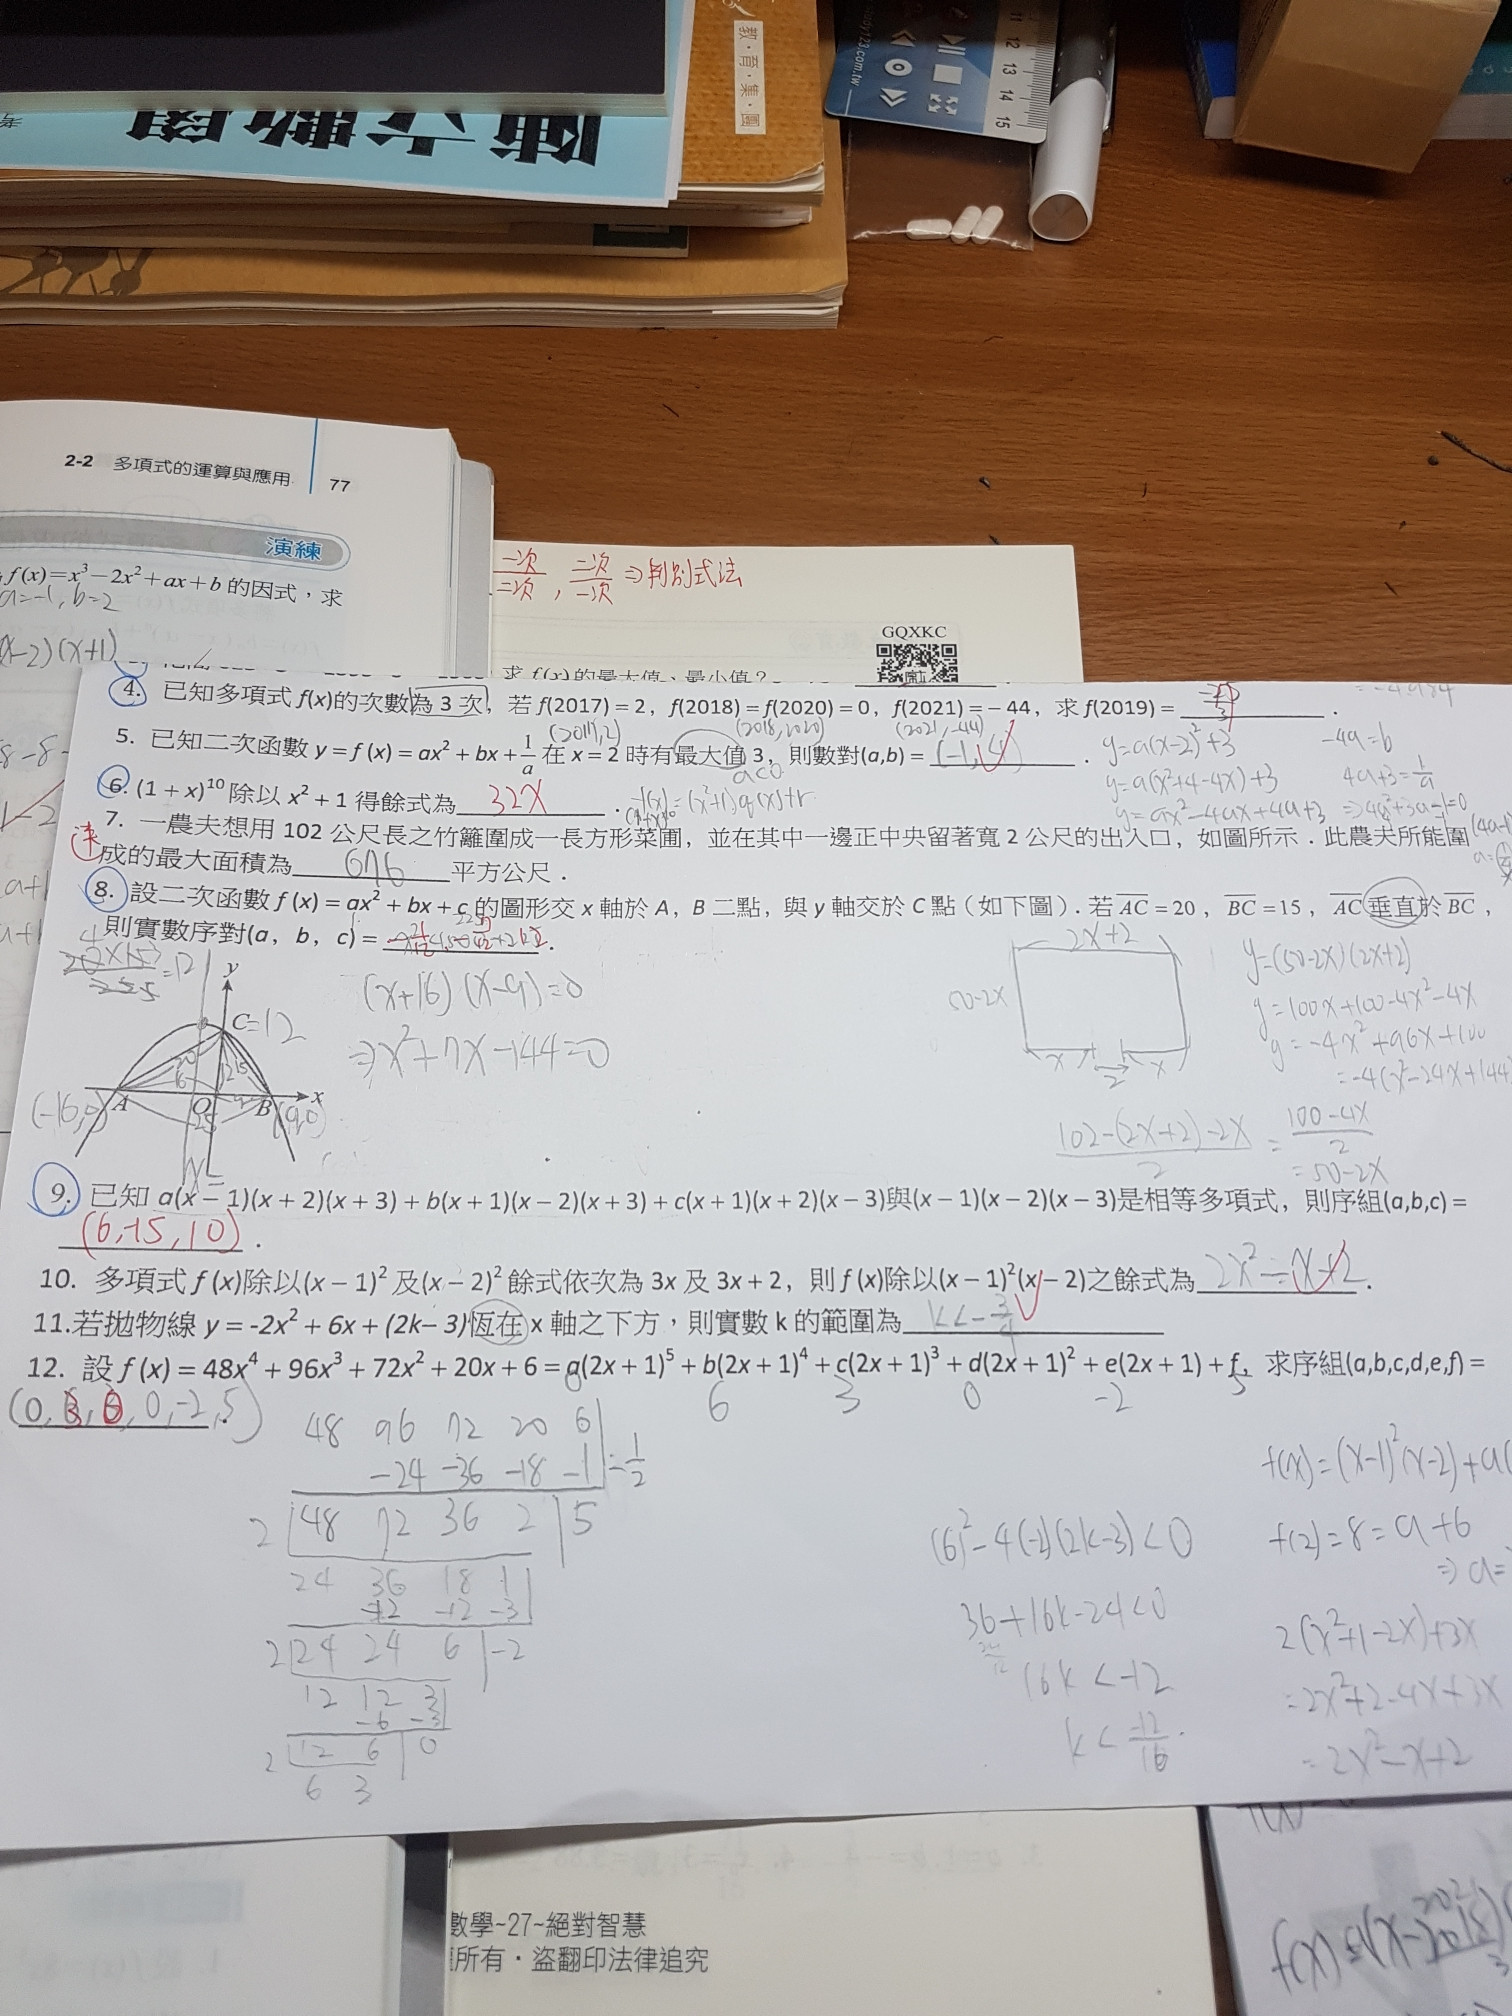 教‧育‧集‧團
study123.com.tw
11 12 13 14 15
2-2 多項式的運算與應用 77
演練
f(x)=x³−2x²+ax+b 的因式，求
a=-1, b=2
(x-2)(x+1)
一次/二次 , 二次/一次 ⇒判別式法
GQXKC
求 f(x)的最大值、最小值?
4. 已知多項式 f(x)的次數為 3 次，若 f(2017) = 2，f(2018) = f(2020) = 0，f(2021) = − 44，求 f(2019) =
(2017,2) (2018,2020) (2021,-44)
5. 已知二次函數 y = f (x) = ax² + bx + 1/a 在 x = 2 時有最大值 3，則數對(a,b) = (-1,4) .
a<0
y=a(x-2)²+3
y=a(x²+4-4x)+3
y=ax²-4ax+4a+3
-4a=b
4a+3=1/a
⇒4a²+3a-1=0
6. (1 + x)¹⁰ 除以 x² + 1 得餘式為 32x .
=(x²+1)q(x)+r
7. 一農夫想用 102 公尺長之竹籬圍成一長方形菜圃，並在其中一邊正中央留著寬 2 公尺的出入口，如圖所示．此農夫所能圍
成的最大面積為 676 平方公尺．
8. 設二次函數 f (x) = ax² + bx + c 的圖形交 x 軸於 A，B 二點，與 y 軸交於 C 點（如下圖）. 若 AC = 20，BC = 15，AC 垂直於 BC，
則實數序對(a，b，c) =
=12
(x+16)(x-9)=0
⇒x²+7x-144=0
y
C=12
20 15
16 12 9
A O B x
25
(-16,0) (9,0)
2x+2
50-2x
x 2 x
y=(50-2x)(2x+2)
y=100x+100-4x²-4x
y=-4x²+96x+100
=-4(x²-24x+144
102-(2x+2)-2x / 2 = 100-4x / 2
=50-2x
9. 已知 a(x − 1)(x + 2)(x + 3) + b(x + 1)(x − 2)(x + 3) + c(x + 1)(x + 2)(x − 3)與(x − 1)(x − 2)(x − 3)是相等多項式，則序組(a,b,c) =
(6,-15,10) .
10. 多項式 f (x)除以(x − 1)² 及(x − 2)² 餘式依次為 3x 及 3x + 2，則 f (x)除以(x − 1)²(x − 2)之餘式為 2x²-x+2 .
11.若拋物線 y = -2x² + 6x + (2k− 3)恆在 x 軸之下方，則實數 k 的範圍為 k<-3/4
12. 設 f (x) = 48x⁴ + 96x³ + 72x² + 20x + 6 = a(2x + 1)⁵ + b(2x + 1)⁴ + c(2x + 1)³ + d(2x + 1)² + e(2x + 1) + f，求序組(a,b,c,d,e,f) =
0 6 3 0 -2 5
48 96 72 20 6
-24 -36 -18 -1 -1/2
2 48 72 36 2 5
24 36 18 1
-12 -12 -3
2 24 24 6 -2
12 12 3
-6 -3
2 12 6 0
6 3
(6)²-4(-2)(2k-3)<0
36+16k-24<0
16k<-12
k<-12/16
f(x)=(x-1)²(x-2)+a(
f(2)=8=a+6
⇒a=
2(x²+1-2x)+3x
=2x²+2-4x+3x
=2x²-x+2
數學~27~絕對智慧
所有．盜翻印法律追究